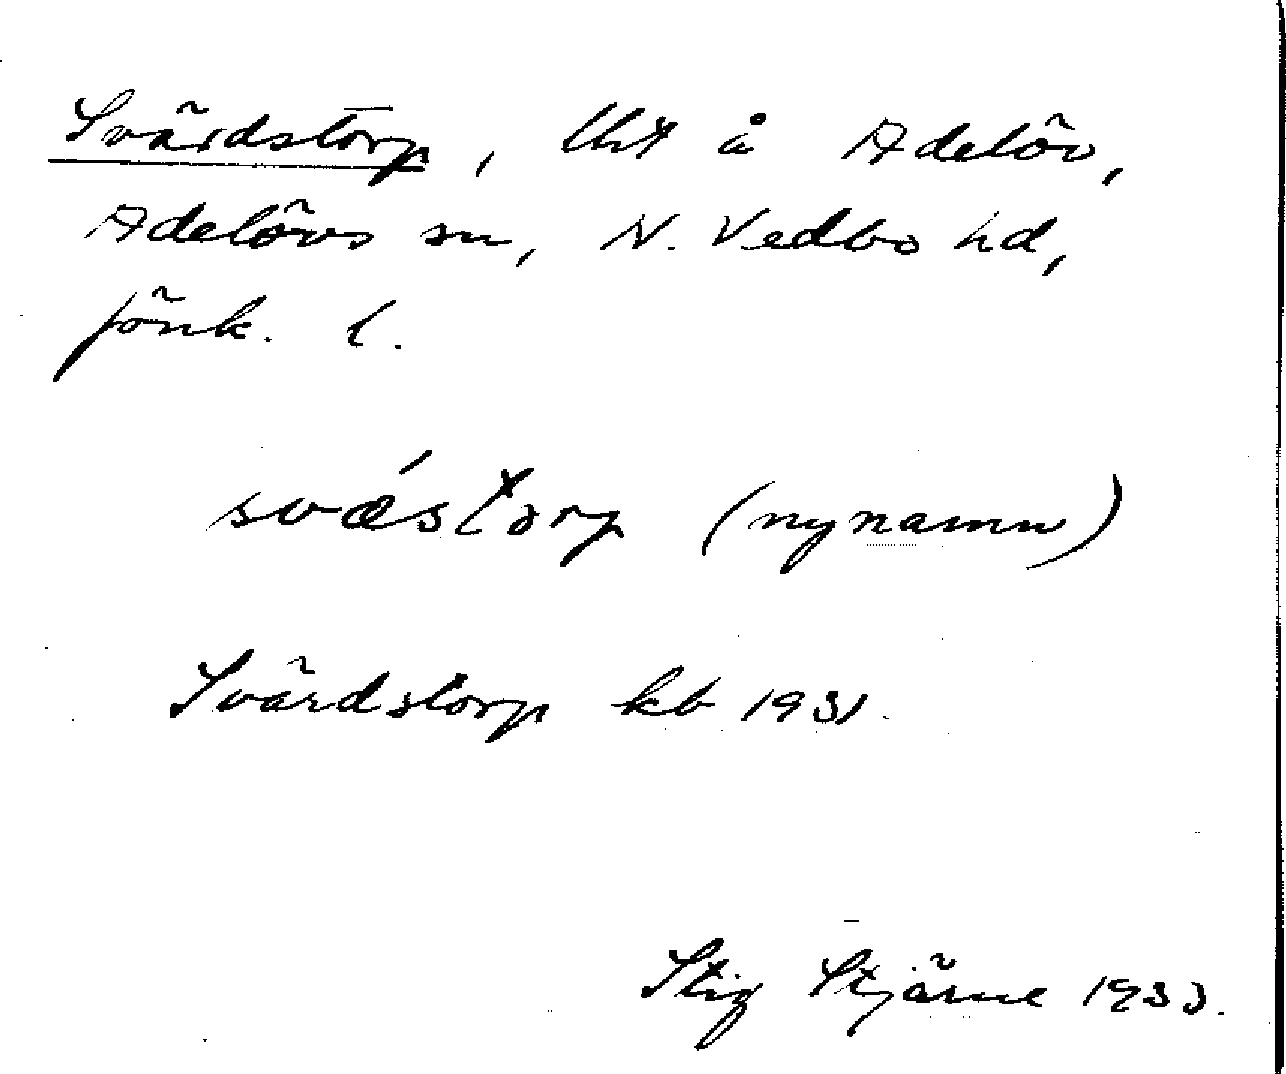 Svärdstorp, lht å Adelöv,
Adelövs sn, N. Vedbo hd,
Jönk. l.
svǽstorp (nynamn)
Svärdstorp kb 1931.
Stig Stjärne 1933.